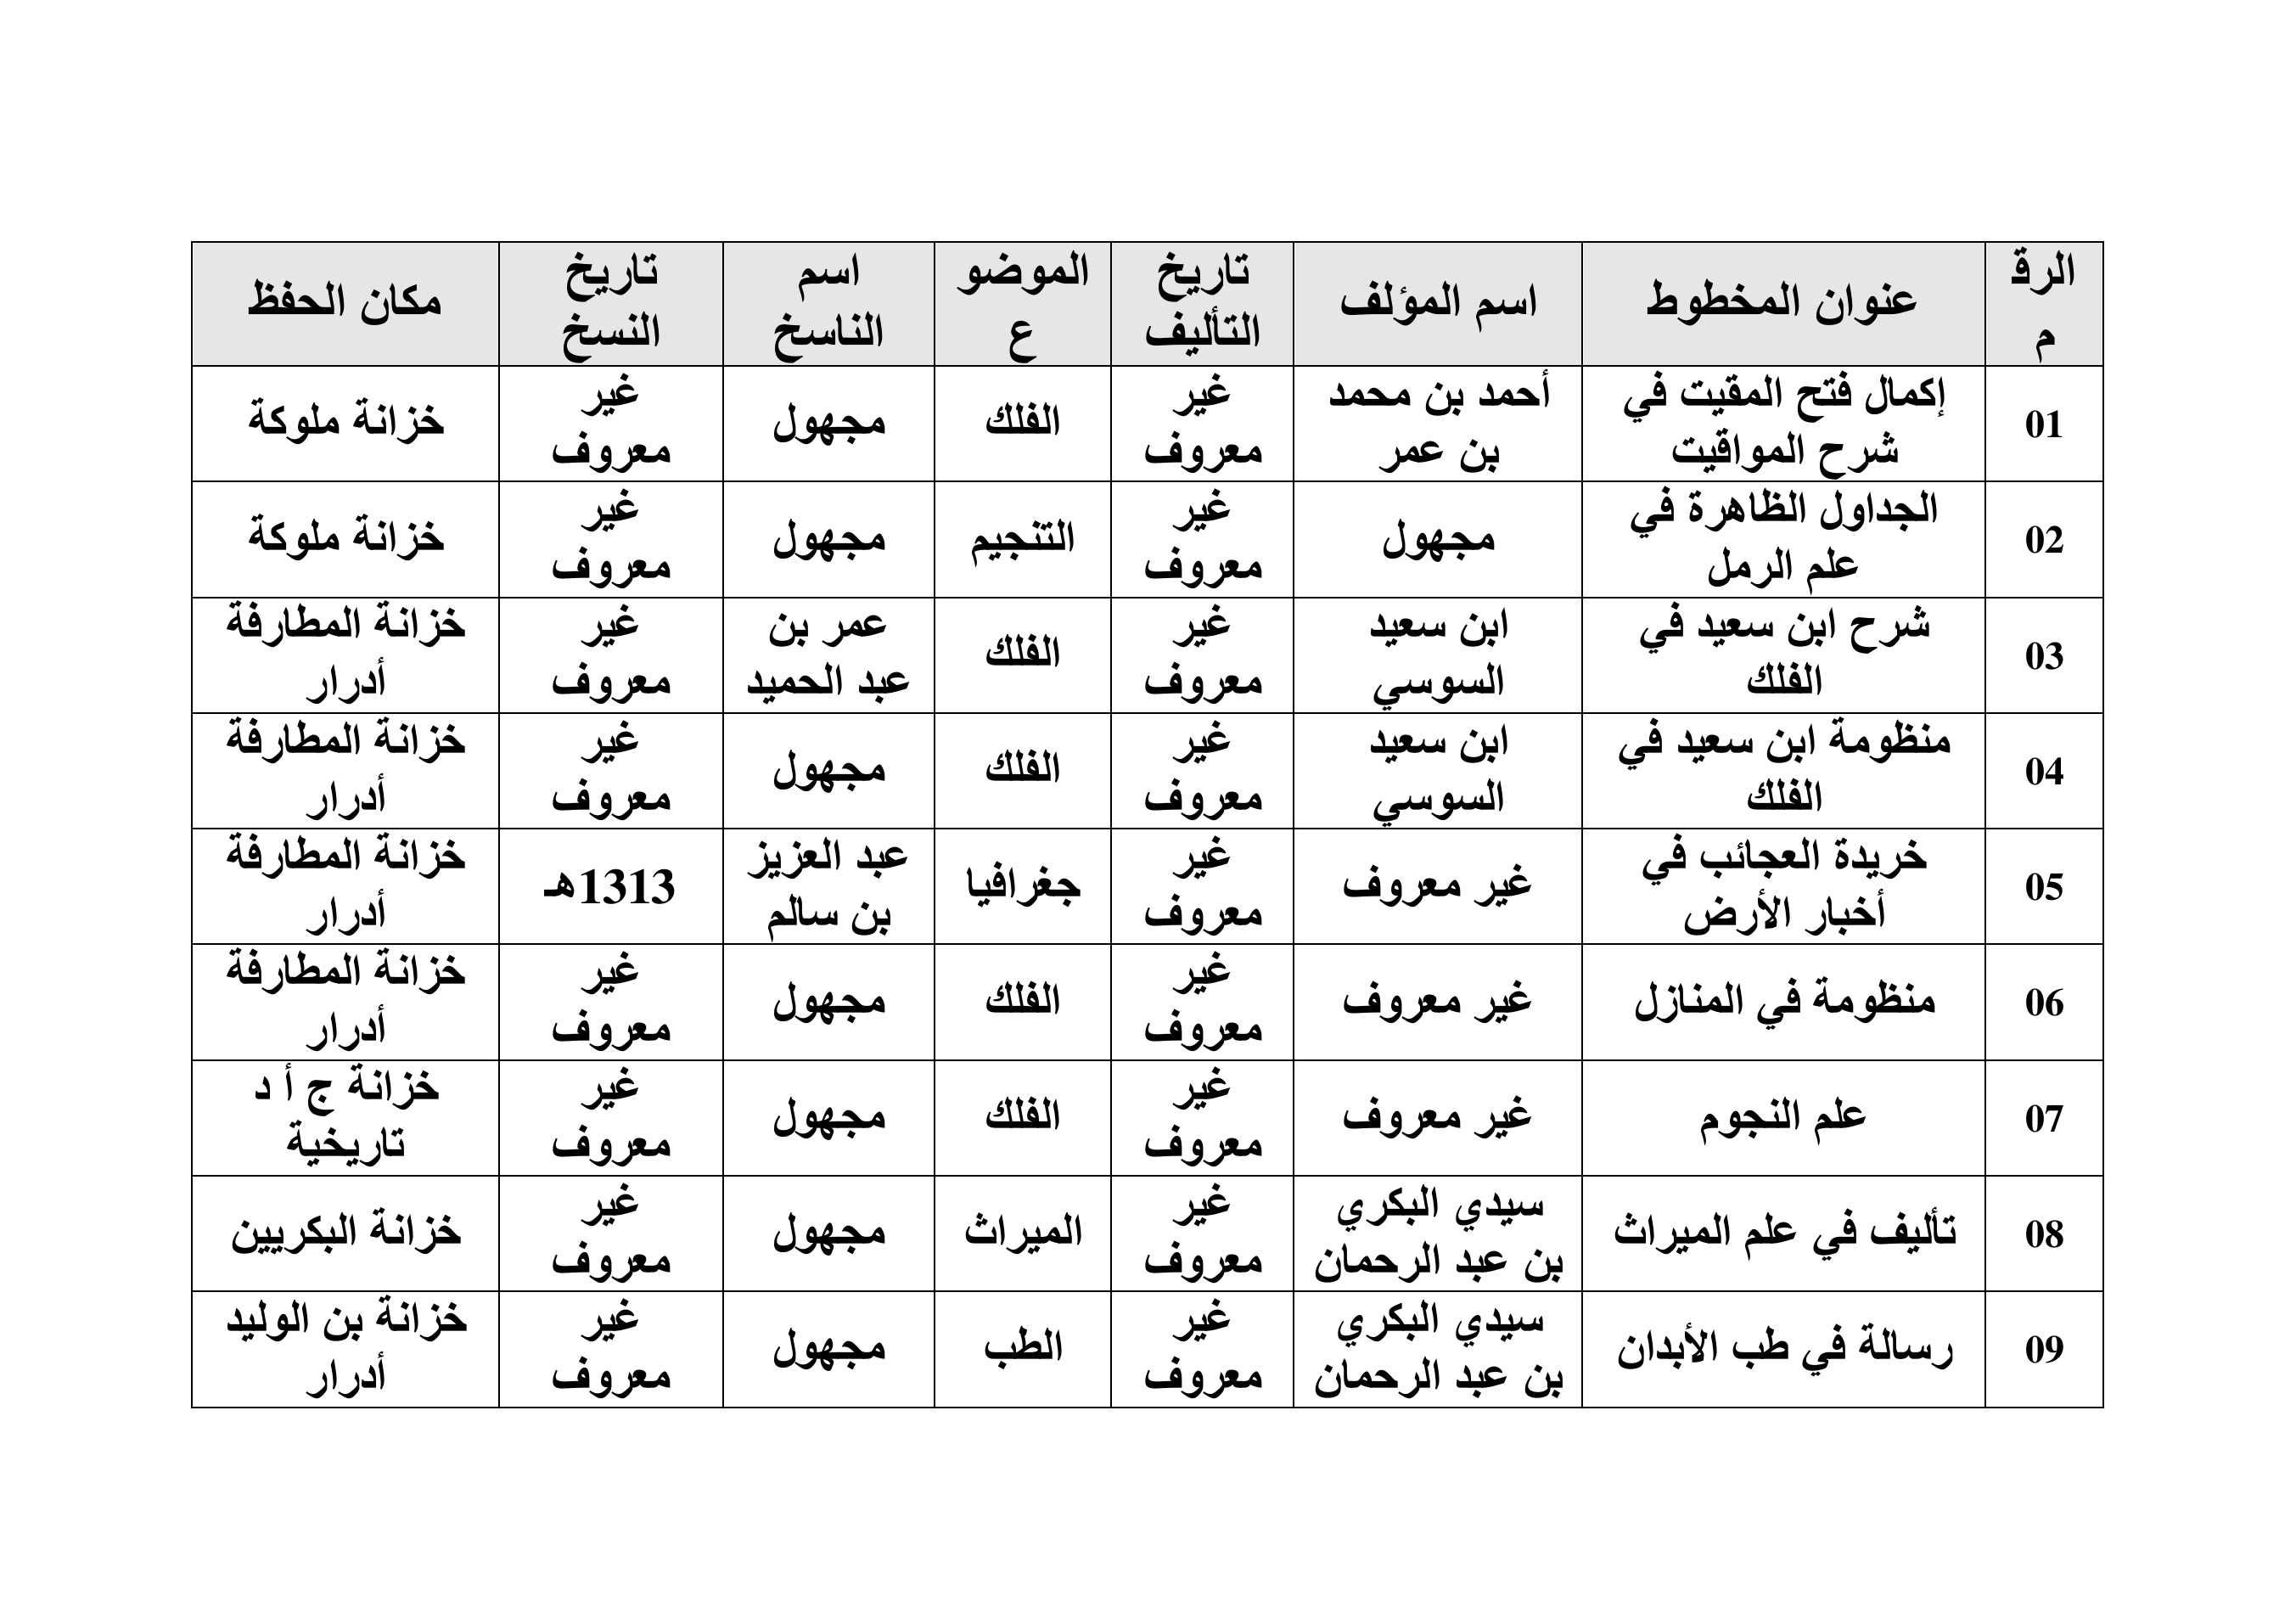 الرقم
عنوان المخطوط
اسم المؤلف
تاريخ
التأليف
الموضوع
اسم
الناسخ
تاريخ
النسخ
مكان الحفظ
01
إكمال فتح المقيت في
شرح المواقيت
أحمد بن محمد
بن عمر
غير
معروف
الفلك
مجهول
غير
معروف
خزانة ملوكة
02
الجداول الظاهرة في
علم الرمل
مجهول
غير
معروف
التنجيم
مجهول
غير
معروف
خزانة ملوكة
03
شرح ابن سعيد في
الفلك
ابن سعيد
السوسي
غير
معروف
الفلك
عمر بن
عبد الحميد
غير
معروف
خزانة المطارفة
أدرار
04
منظومة ابن سعيد في
الفلك
ابن سعيد
السوسي
غير
معروف
الفلك
مجهول
غير
معروف
خزانة المطارفة
أدرار
05
خريدة العجائب في
أخبار الأرض
غير معروف
غير
معروف
جغرافيا
عبد العزيز
بن سالم
1313هـ
خزانة المطارفة
أدرار
06
منظومة في المنازل
غير معروف
غير
معروف
الفلك
مجهول
غير
معروف
خزانة المطارفة
أدرار
07
علم النجوم
غير معروف
غير
معروف
الفلك
مجهول
غير
معروف
خزانة ج أ د
تاريخية
08
تأليف في علم الميراث
سيدي البكري
بن عبد الرحمان
غير
معروف
الميراث
مجهول
غير
معروف
خزانة البكريين
09
رسالة في طب الأبدان
سيدي البكري
بن عبد الرحمان
غير
معروف
الطب
مجهول
غير
معروف
خزانة بن الوليد
أدرار